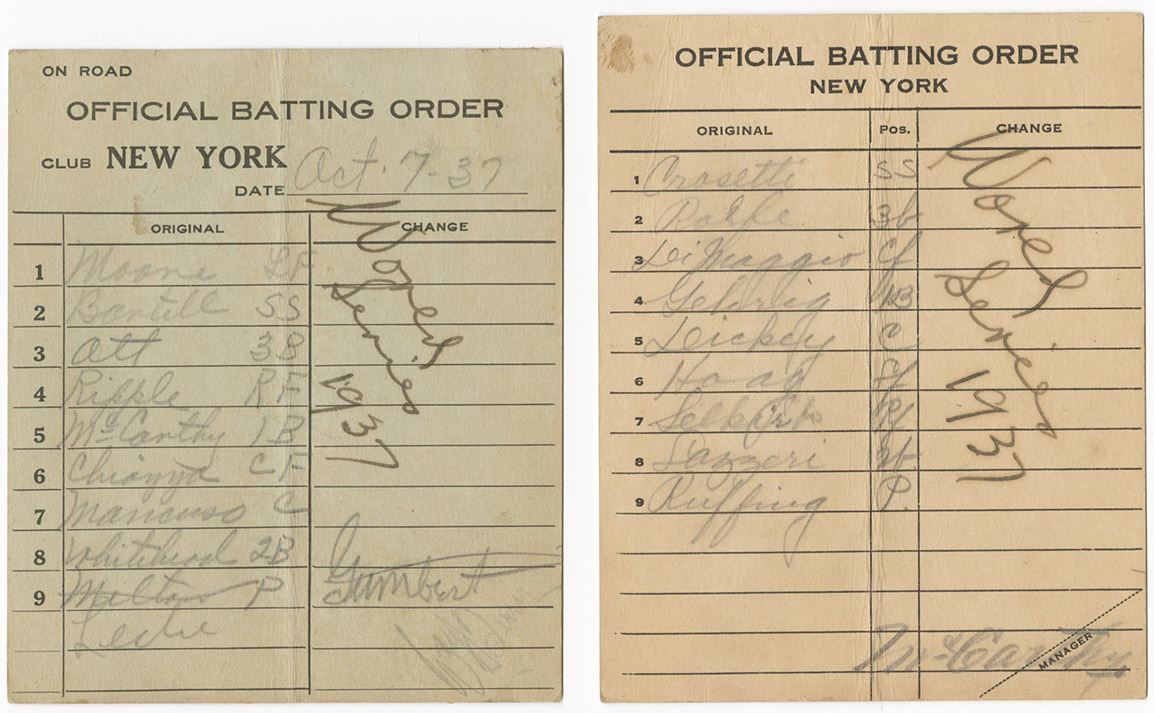 ON ROAD
OFFICIAL BATTING ORDER
CLUB NEW YORK
DATE Oct. 7-37
ORIGINAL CHANGE
1 Moore LF
2 Bartell SS
3 Ott 3B
4 Ripple RF
5 McCarthy 1B
6 Chiozza CF
7 Mancuso C
8 Whitehead 2B
9 Melton P Gumbert
Leslie
World
Series
1937
OFFICIAL BATTING ORDER
NEW YORK
ORIGINAL POS. CHANGE
1 Crosetti SS
2 Rolfe 3b
3 DiMaggio Cf
4 Gehrig 1B
5 Dickey C
6 Hoag lf
7 Selkirk Rf
8 Lazzeri
9 Ruffing P.
World
Series
1937
McCarthy
MANAGER